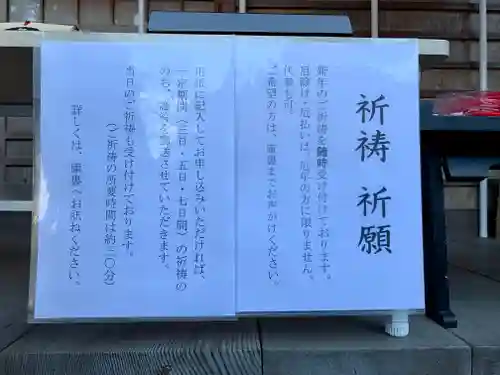 祈祷 祈願
新年のご祈祷を随時受け付けております。
厄除け・厄払いは、厄年の方に限りません。
代参も可。
ご希望の方は、童書までお声がけください。
用紙に記入してお申し込みいただければ、
一定期間（三日・五日・七日間）の祈祷の
のち、護符を郵送させていただきます。
当日のご祈祷も受け付けております。
（ご祈祷の所要時間は約二〇分）
詳しくは、へお訪ねください。